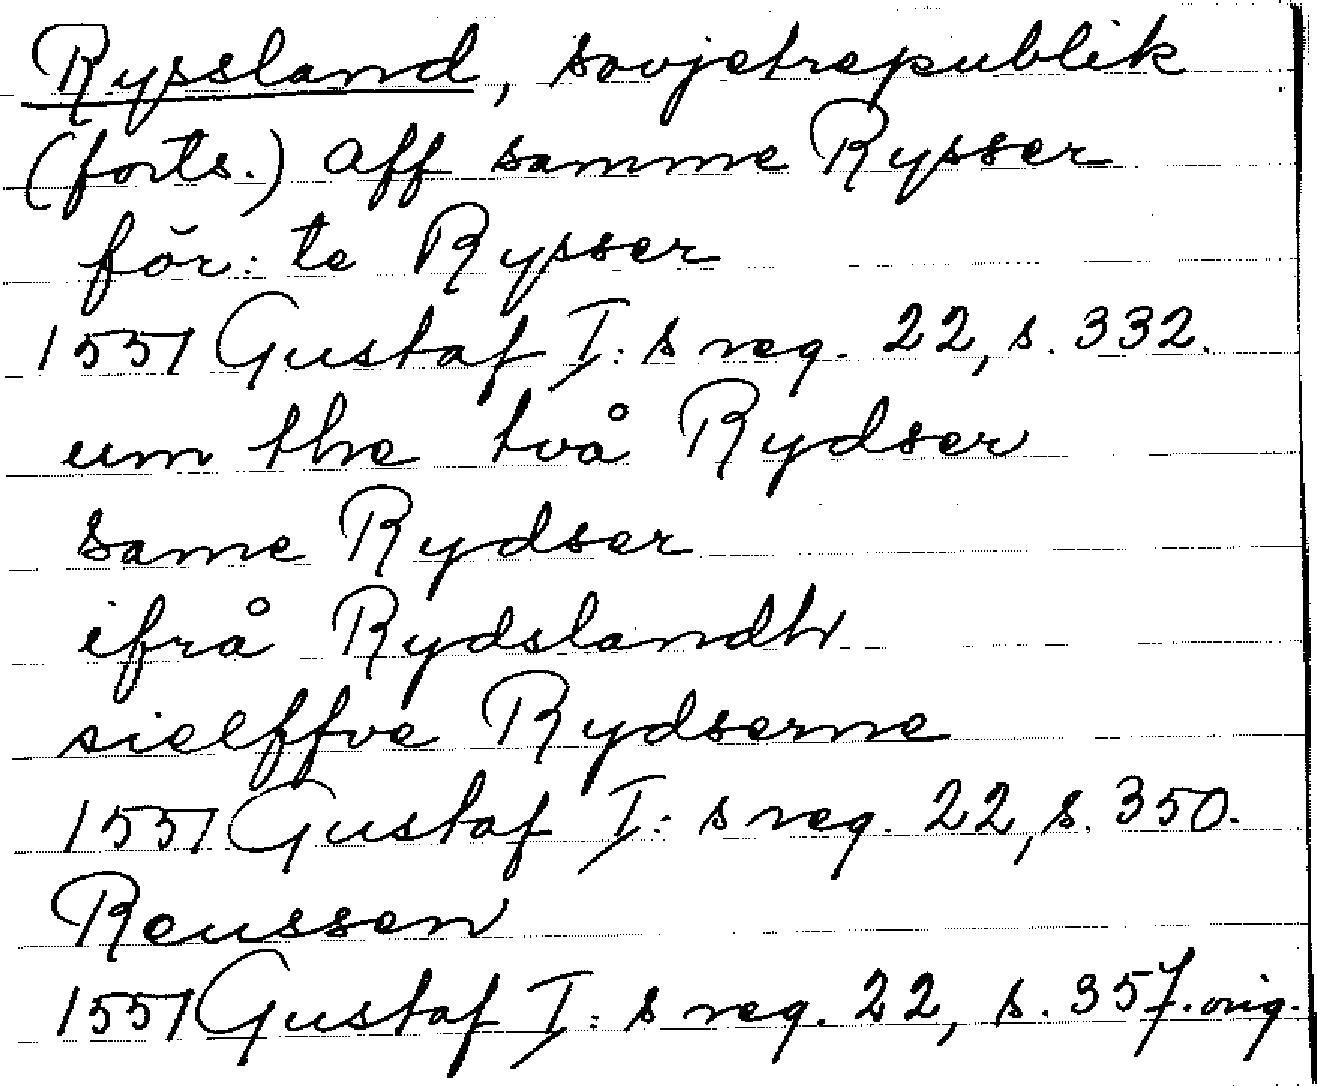 Ryssland, sovjetrepublik
(forts.) aff samme Rysser
för: te Rysser
1551 Gustaf I:s reg. 22, s. 332.
um the två Rydser
same Rydser
ifrå Rydslandh
sielffve Rydserne
1551 Gustaf I:s reg. 22, s. 350.
Reussen
1551 Gustaf I:s reg. 22, s. 357. orig.